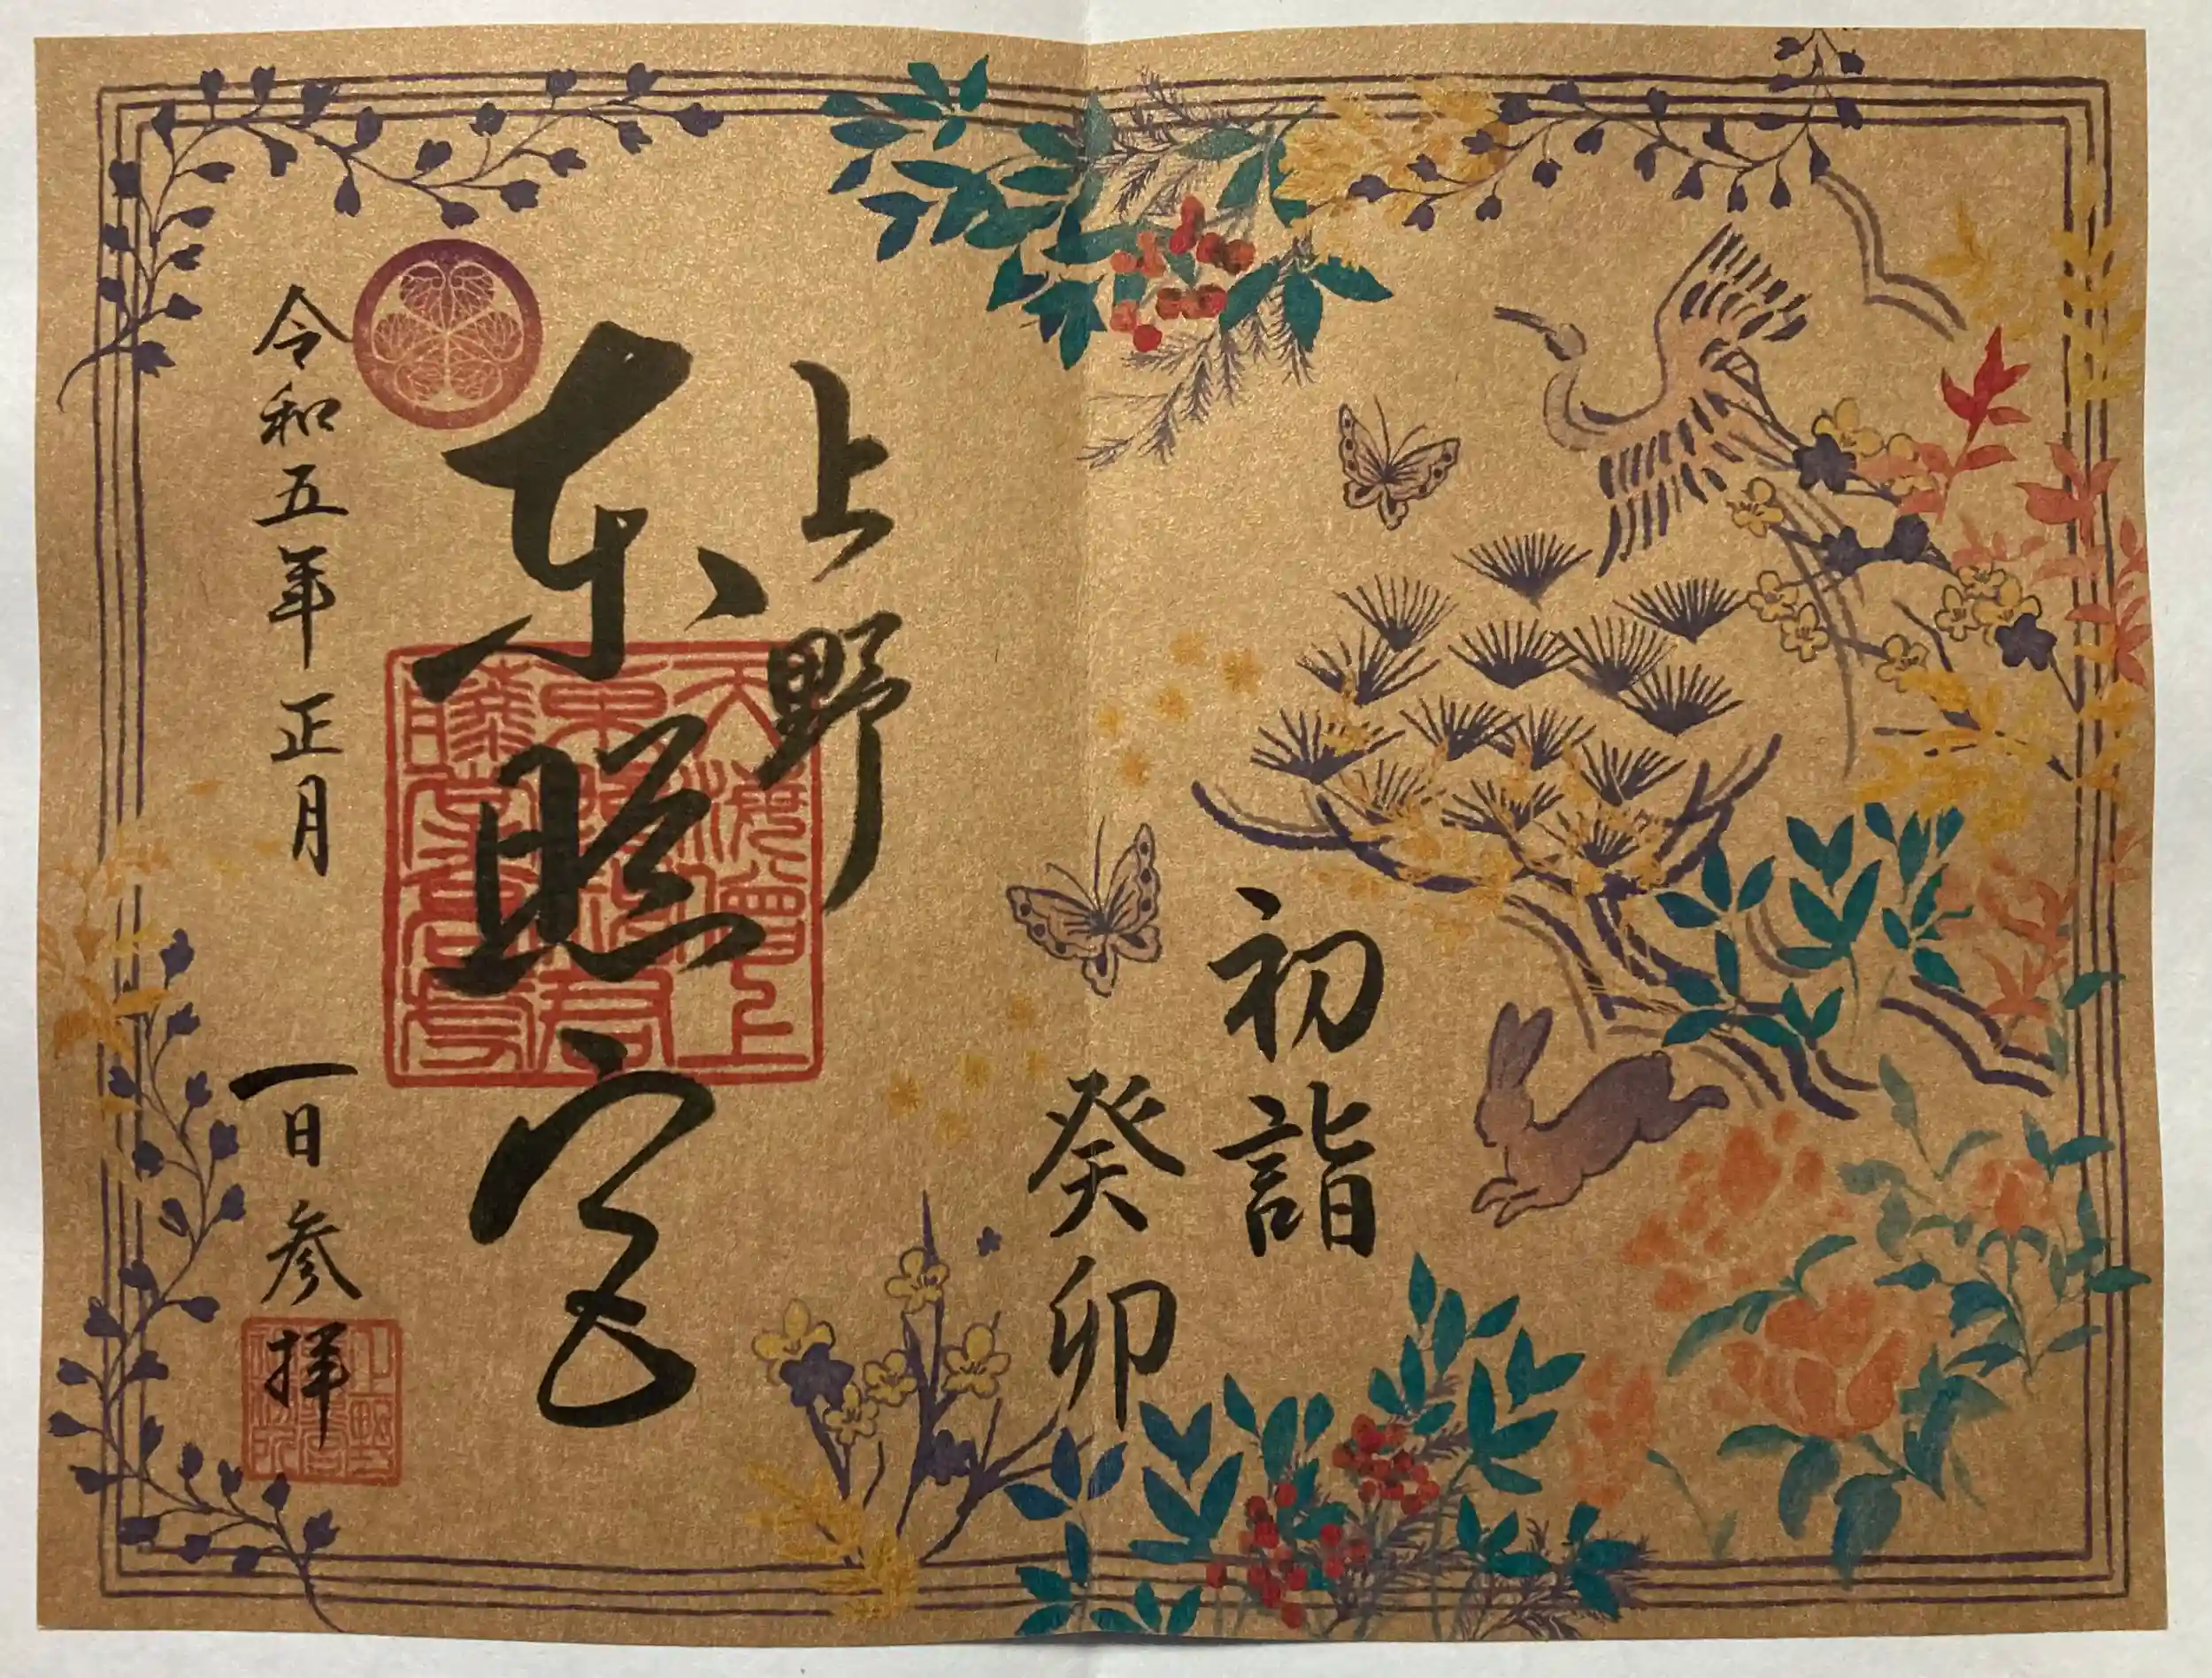 初詣
癸卯
上野
東照宮
令和五年正月
一日参拝